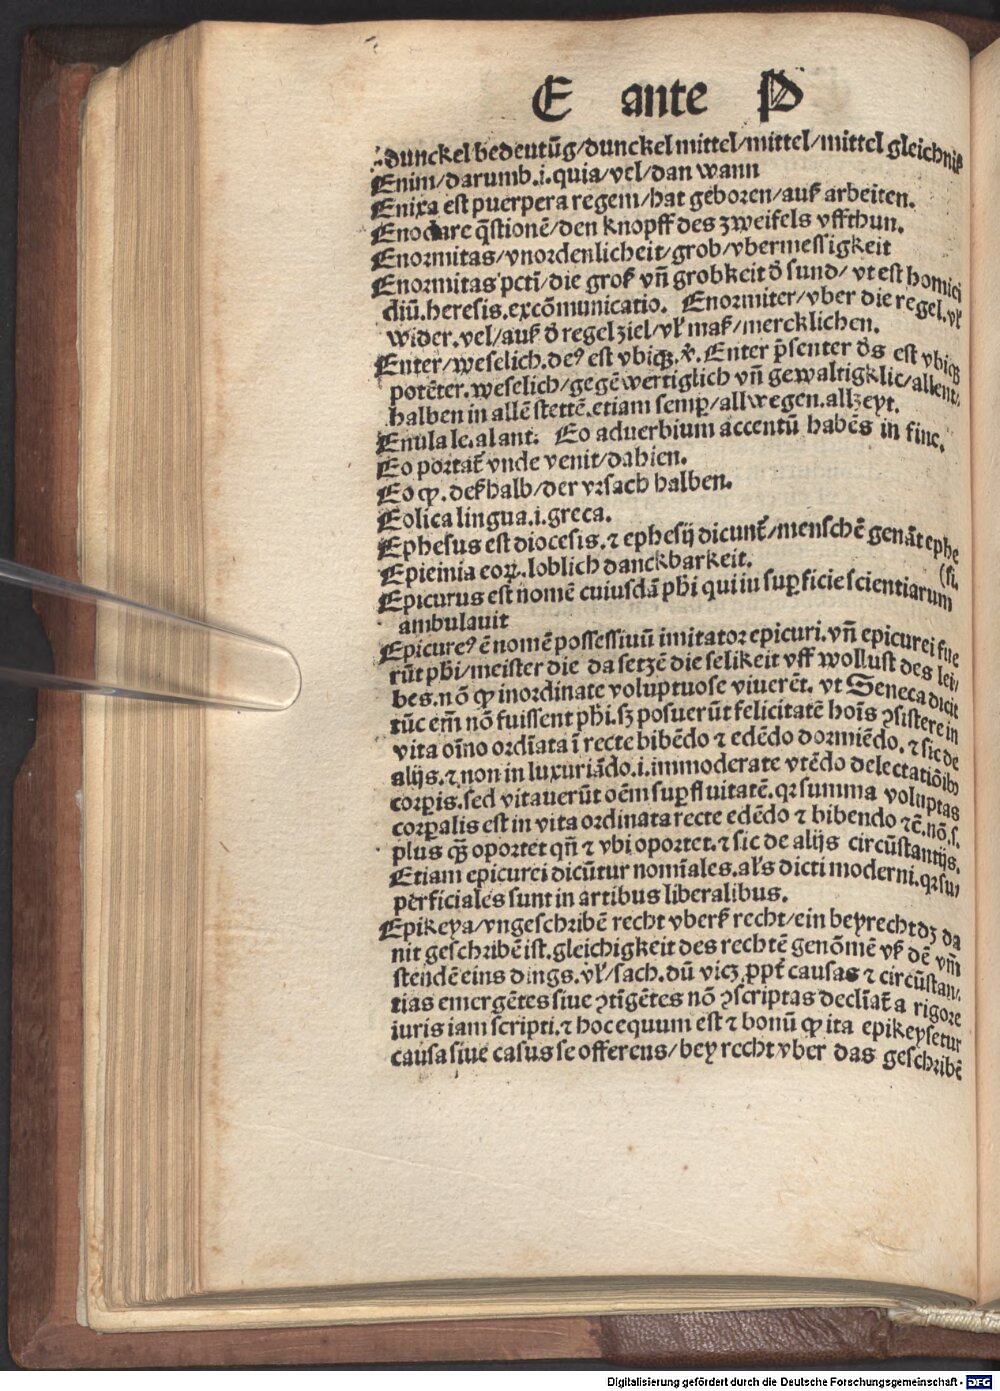 E ante P
dunckel bedeutūg/dunckel mittel/mittel/mittel gleichniß
Enim/darumb.i.quia/vel/dan wann
Enixa est puerpera regem/hat geboren/auß arbeiten.
Enodare q̄stionē/den knopff des zweifels vffthun.
Enormitas/vnordenlicheit/grob/vbermessigkeit
Enormitas pcti̅/die groß vn̄ grobkeit d̕ sund/ vt est homici
diū.heresis.excōmunicatio. Enormiter/vber die regel.vl̕
wider.vel/auß d̕ regel ziel/vl̕ maß/mercklichen.
Enter/weselich.deꝰ est vbiqꝫ.ꝟ.Enter p̄senter d̕s est vbiqꝫ
potēter.weselich/gegēwertiglich vn̄ gewaltigklic/allent/
halben in allē stettē.etiam semꝑ/allwegen.allzeyt.
Enula le.alant. Eo aduerbium accentū habēs in fine.
Eo portat̄ vnde venit/dahien.
Eo ꝙ.deßhalb/der vrsach halben.
Eolica lingua.i.greca.
Ephesus est diocesis.⁊ ephesij dicunt̄/menschē genāt ephe
Epicinia eoꝝ.loblich danckbarkeit. (si.
Epicurus est nomē cuiusdā phi̅ qui in suꝑficie scientiarum
ambulauit
Epicureꝰ ē nomē possessiuū imitator epicuri.vn̄ epicurei fue
rūt phi̅/meister die da setzē die selikeit vff wollust des lei/
bes.nō ꝙ inordinate voluptuose viuerēt. vt Seneca dicit
tūc em̄ nō fuissent phi̅.sꝫ posuerūt felicitatē hoi̅s ꝯsistere in
vita oi̅no ordi̅ata i̅ recte bibēdo ⁊ edēdo dormiēdo.⁊ sic de
alijs.⁊ non in luxuriādo.i.immoderate vtēdo delectatiōibꝰ
corꝑis.sed vitauerūt oēm suꝑfluitatē.qꝛ summa voluptas
corꝑalis est in vita ordinata recte edēdo ⁊ bibendo ⁊c̄.nō.s.
plus qꝫ̄ oportet qn̄ ⁊ vbi oportet.⁊ sic de alijs circūstantijs.
Etiam epicurei dicūtur nomi̅ales.al̕s dicti moderni.qꝛ su/
perficiales sunt in artibus liberalibus.
Epikeya/vngeschribē recht vberß recht/ein beyrecht dꝫ da
nit geschribē ist.gleichigkeit des rechtē genōmē vß dē vm̄
stendē eins dings.vl̕/sach.dū vicꝫ ꝓpt̄ causas ⁊ circūstan/
tias emergētes siue ꝯti̅gētes nō ꝯscriptas decli̅at̄ a rigore
iuris iam scripti.⁊ hoc equum est ⁊ bonū ꝙ ita epikeysetur
causa siue casus se offerens/bey recht vber das geschribē
Digitalisierung gefördert durch die Deutsche Forschungsgemeinschaft - DFG